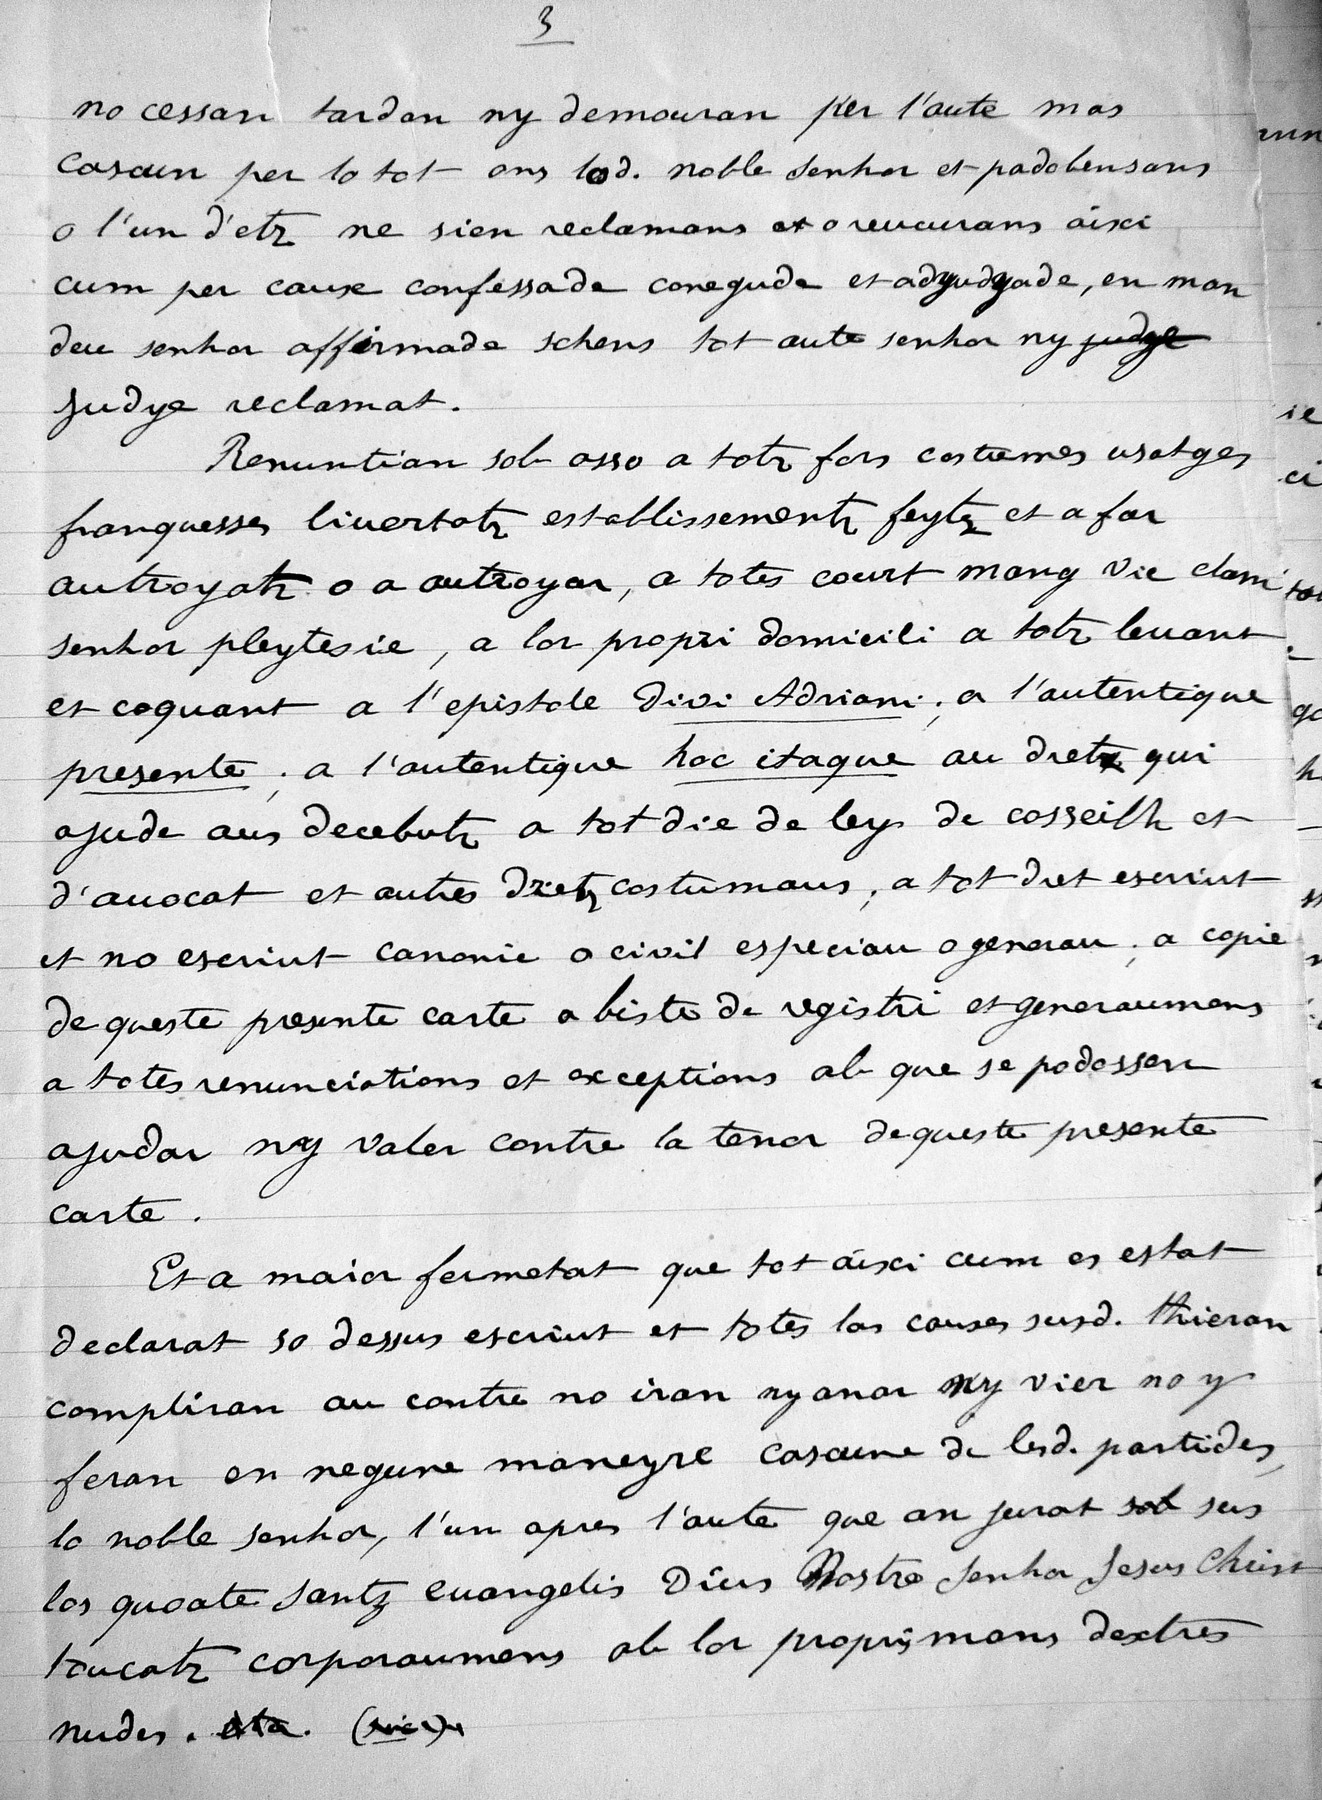 3
no cessan tardan ny demouran per l'aute mas
cascun per lo tot ans lod. noble senhor et padobensans
o l'un d'etz ne sien reclamans et o reucurans aixi
cum per cause confessade conegude et adyudyade, en man
deu senhor affirmade schens tot aute senhor ny judye
judye reclamat.
Renuntian sob asso a totz fors costumes usatges
franquesses livertatz establissementz feytz et a far
autroyatz o a autroyar, a totes court mang vic clam
senhor pleytesie, a lor propri domicili a totz levant
et coquant a l'epistole Divi Adriani, a l'autentique
presente, a l'autentique hoc itaque au dretz qui
ajude aus decebutz a tot die de leys de cosseilh et
d'avocat et autres dretz costumaus, a tot dret escriut
et no escriut canonic o civil especiau o generau, a copie
de queste presente carte a biste de registri et generaumens
a totes renunciations et exceptions ab que se podossen
ajudar ny valer contre la tenor de queste presente
carte.
Et a maior fermetat que tot aixi cum es estat
declarat so dessus escriut et totes las causes susd. thieran
compliran au contre no iran ny anar ny vier no y
feran en negune maneyre cascune de lesd. partides,
lo noble senhor, l'un apres l'aute que an jurat sob sus
los quoate santz evangelis Dius Nostre Senhor Jesus Christ
toucatz corporaumens ab lor propris mans dextres
nudes. eta. (sic)